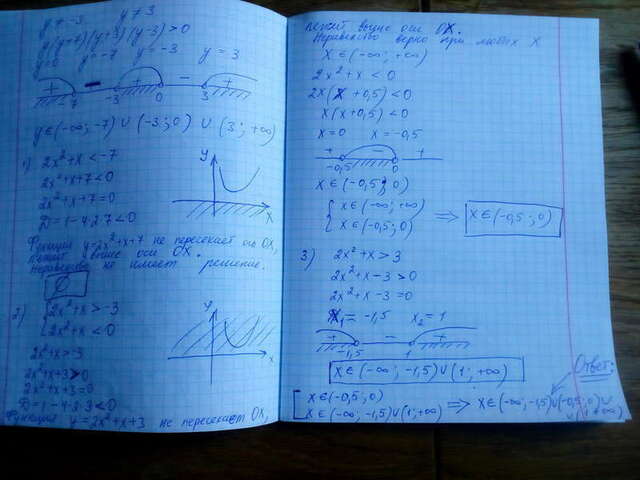 y ≠ -3   y ≠ 3
y(y+7)(y+3)(y-3)>0
y=0   y=-7   y=-3   y=3
+ - + - +
-7 -3 0 3
y∈(-∞;-7)∪(-3;0)∪(3;+∞)
1) 2x²+x<-7
2x²+x+7<0
2x²+x+7=0
D=1-4·2·7<0
y
x
Функция y=2x²+x+7 не пересекает ось OX,
лежит выше оси OX.
Неравенство не имеет решение.
∅
2) {2x²+x>-3
2x²+x<0
2x²+x>-3
2x²+x+3>0
2x²+x+3=0
D=1-4·3·3<0
y
x
Функция y=2x²+x+3 не пересекает OX,
лежит выше оси OX.
Неравенство верно при любых X
X∈(-∞;+∞)
2x²+x<0
2x(x+0,5)<0
x(x+0,5)<0
x=0   x=-0,5
+ - +
-0,5 0
X∈(-0,5;0)
{X∈(-∞;+∞)
X∈(-0,5;0) ⟹ X∈(-0,5;0)
3) 2x²+x>3
2x²+x-3>0
2x²+x-3=0
x₁=-1,5   x₂=1
+ - +
-1,5 1
X∈(-∞;-1,5)∪(1;+∞)
Ответ:
[X∈(-0,5;0)
X∈(-∞;-1,5)∪(1;+∞) ⟹ X∈(-∞;-1,5)∪(-0,5;0)∪
∪(1;+∞)